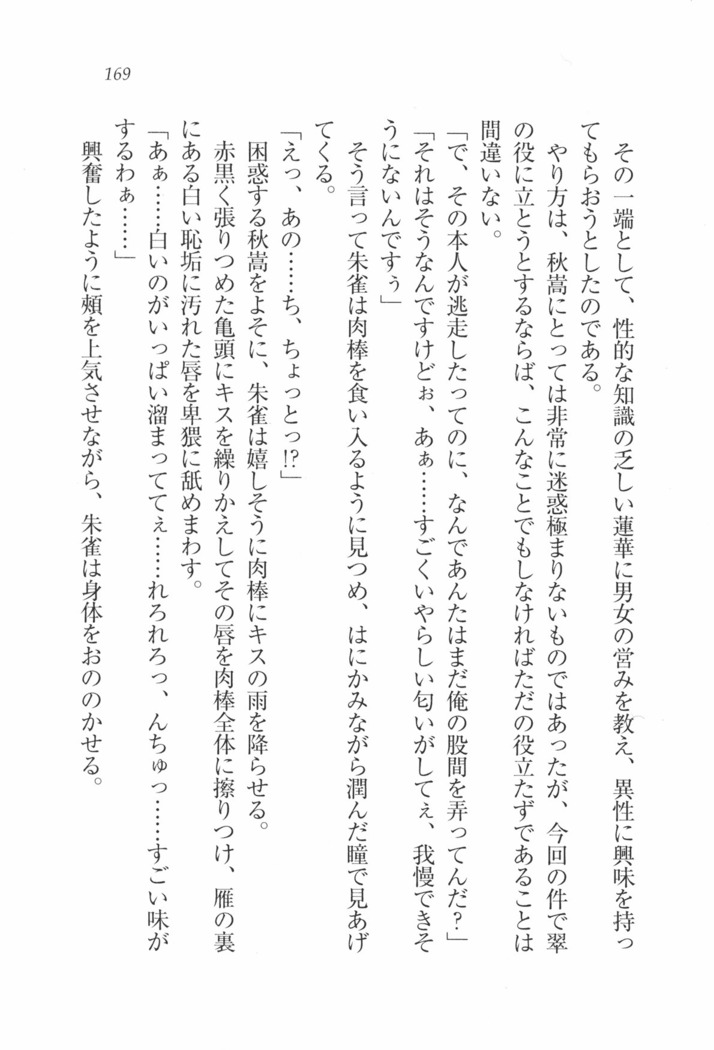 169
その一端として、性的な知識の乏しい蓮華に男女の営みを教え、異性に興味を持っ
てもらおうとしたのである。
やり方は、秋嵩にとっては非常に迷惑極まりないものではあったが、今回の件で翠
の役に立とうとするならば、こんなことでもしなければただの役立たずであることは
間違いない。
「で、その本人が逃走したってのに、なんであんたはまだ俺の股間を弄ってんだ？」
「それはそうなんですけどぉ、あぁ……すごくいやらしい匂いがしてぇ、我慢できそ
うにないんですぅ」
そう言って朱雀は肉棒を食い入るように見つめ、はにかみながら潤んだ瞳で見あげ
てくる。
「えっ、あの……ち、ちょっとっ!?」
困惑する秋嵩をよそに、朱雀は嬉しそうに肉棒にキスの雨を降らせる。
赤黒く張りつめた亀頭にキスを繰りかえしてその唇を肉棒全体に擦りつけ、雁の裏
にある白い恥垢に汚れた唇を卑猥に舐めまわす。
「あぁ……白いのがいっぱい溜まっててぇ……れろれろっ、んちゅっ……すごい味が
するわぁ……」
興奮したように頬を上気させながら、朱雀は身体をおののかせる。